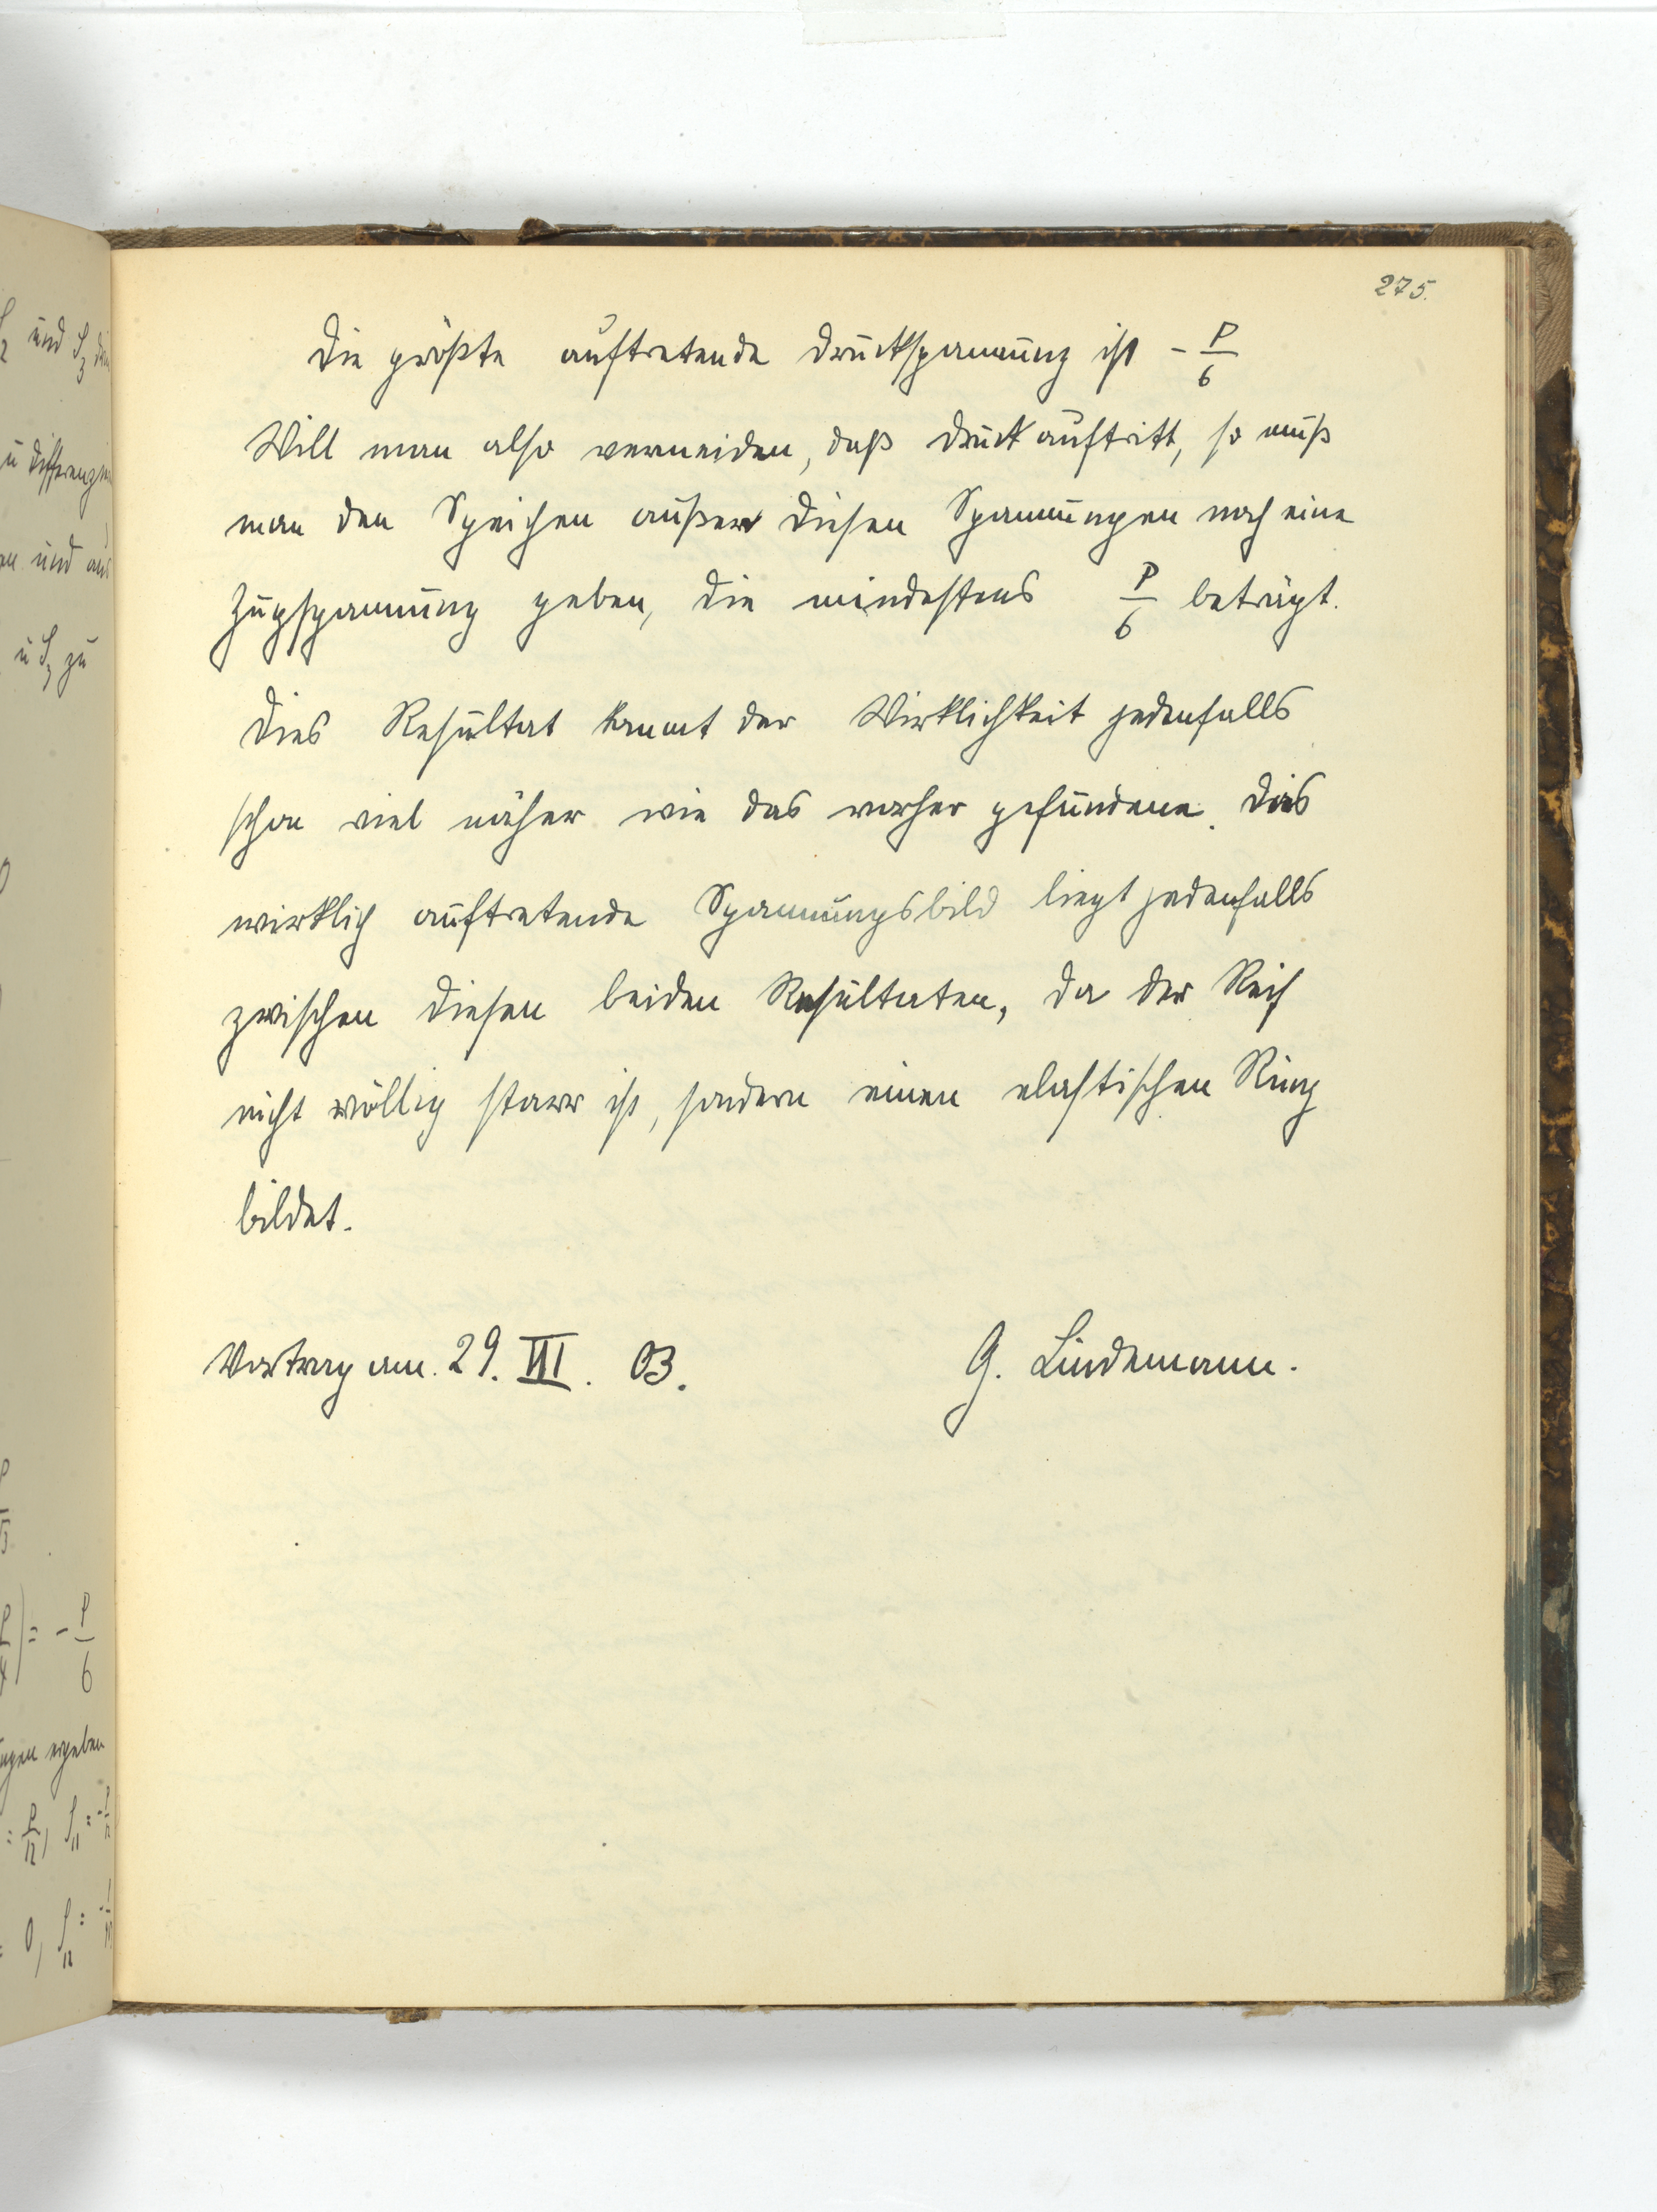 275.
Die größte auftretende Druckspannung ist - P/6
Will man also vermeiden, daß Druck auftritt, so muß
man den Speichen außer diesen Spannungen noch eine
Zugspannung geben, die mindestens P/6 beträgt.
Dies Resultat kommt der Wirklichkeit jedenfalls
schon viel näher wie das vorher gefundene. Das
wirklich auftretende Spannungsbild liegt jedenfalls
zwischen diesen beiden Resultaten, da der Reif
nicht völlig starr ist, sondern einen elastischen Ring
bildet.
Vortrag am. 29. VII. 03.
G. Lindemann.
und S3
u differenzi
en und aus
u S3 zu
) = - P/6
ngen ergeben
= P/12, S11 = -
= 0, S12 = -